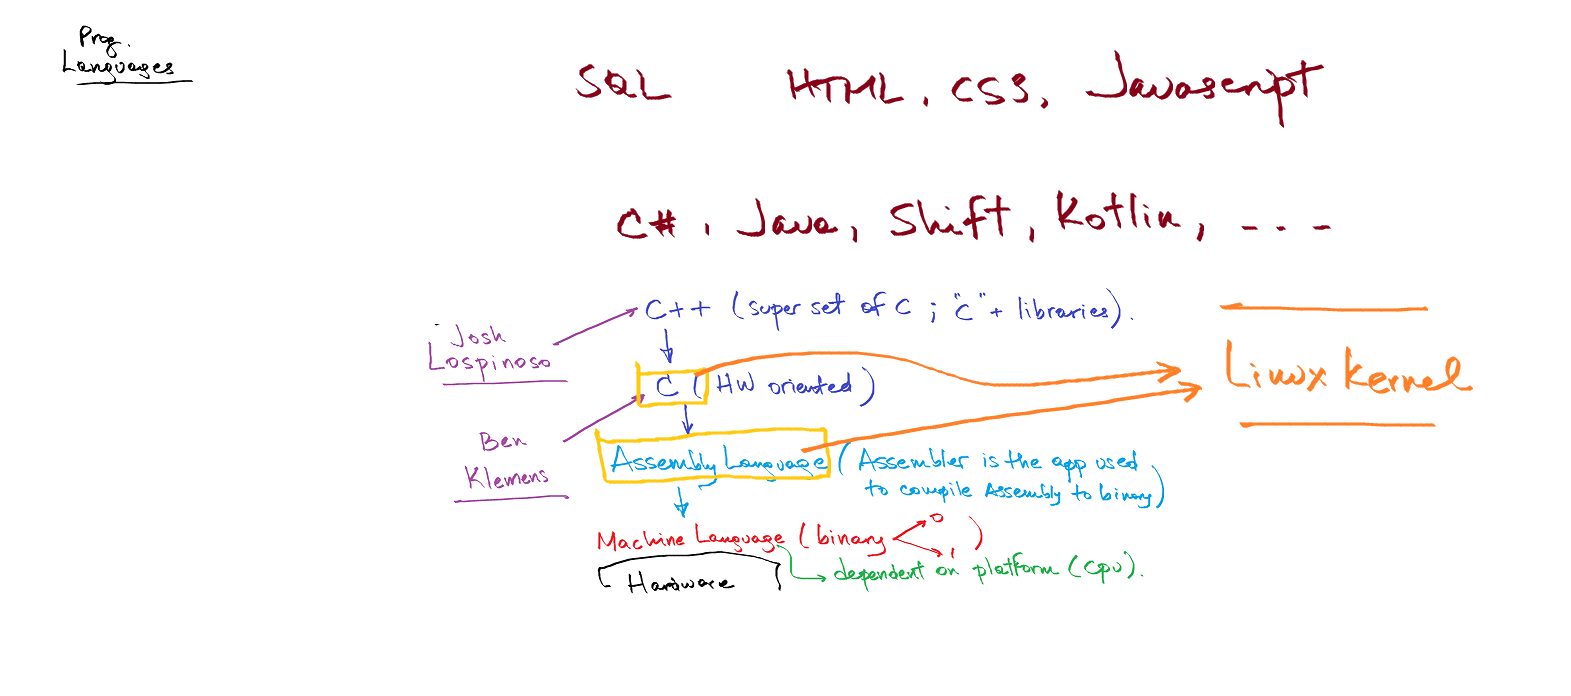 Prog.
Languages
SQL HTML, CSS, Javascript
C#, Java, Shift, Kotlin, ...
C++ (super set of C ; "C" + libraries).
Josh
Lospinoso
C (HW oriented)
Linux Kernel
Ben
Klemens
Assembly Language (Assembler is the app used
to compile Assembly to binary)
Machine Language (binary 0
1 )
dependent on platform (CPU).
Hardware